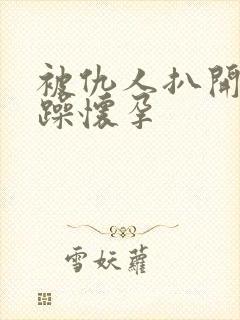 被仇人扒開
躁懷孕
雪妖蘿